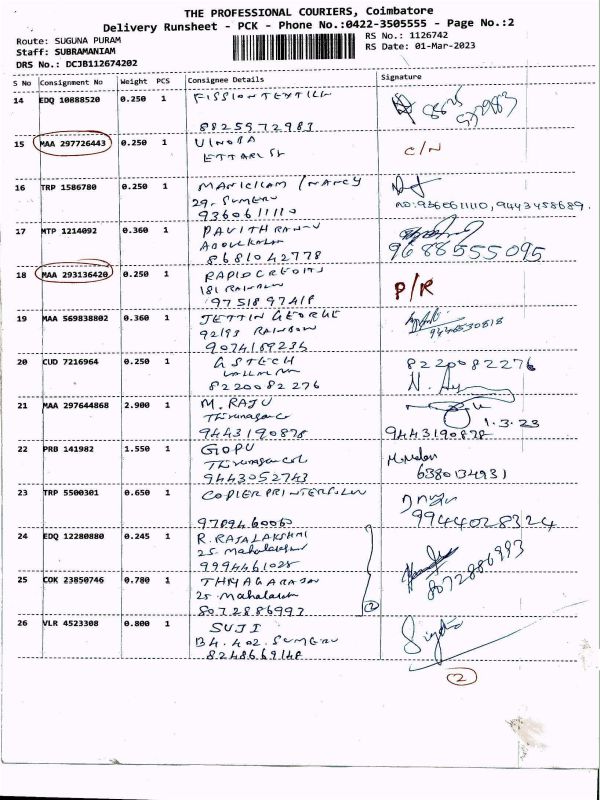 THE PROFESSIONAL COURIERS, Coimbatore
Delivery Runsheet - PCK - Phone No.:0422-3505555 - Page No.:2
Route: SUGUNA PURAM
RS No.: 1126742
Staff: SUBRAMANIAM
RS Date: 01-Mar-2023
DRS No.: DCJB112674202
S No Consignment No Weight PCS Consignee Details Signature
14 EDQ 10888520 0.250 1 FISSION TEXTILE
8825972983
15 MAA 297726443 0.250 1 VINOBA C/N
16 TRP 1586780 0.250 1 MANICKAM / NANCY
29. SUMERU
9360611110 NO: 9360611110, 9443458689.
17 MTP 1214092 0.360 1 PAVITHRAN
ABDULKALAM
8681042778 9688555095
18 MAA 293136420 0.250 1 RAPID CREDITS P/R
181 RAINBOW
9751897418
19 MAA 569838802 0.360 1 JETTIN GEORGE
92/93 RAINBOW
9074189234
20 CUD 7216964 0.250 1 GSTECH 8220082276
8220082276
21 MAA 297644868 2.900 1 M. RAJU
1.3.23
9443190878 9443190878
22 PRB 141982 1.550 1 GOPU
9443052743 6380134931
23 TRP 5500301 0.650 1 COPIER PRINTER
9944028324
24 EDQ 12280880 0.245 1 R. RAJALAKSHMI
25. Mahalakshmi
9994461028 8072886993
25 COK 23850746 0.780 1 THIYAGARAJAN
25 Mahalakshmi
8072886993 2
26 VLR 4523308 0.800 1 SUJI
B4. 402. SUMERU
8248669148
2